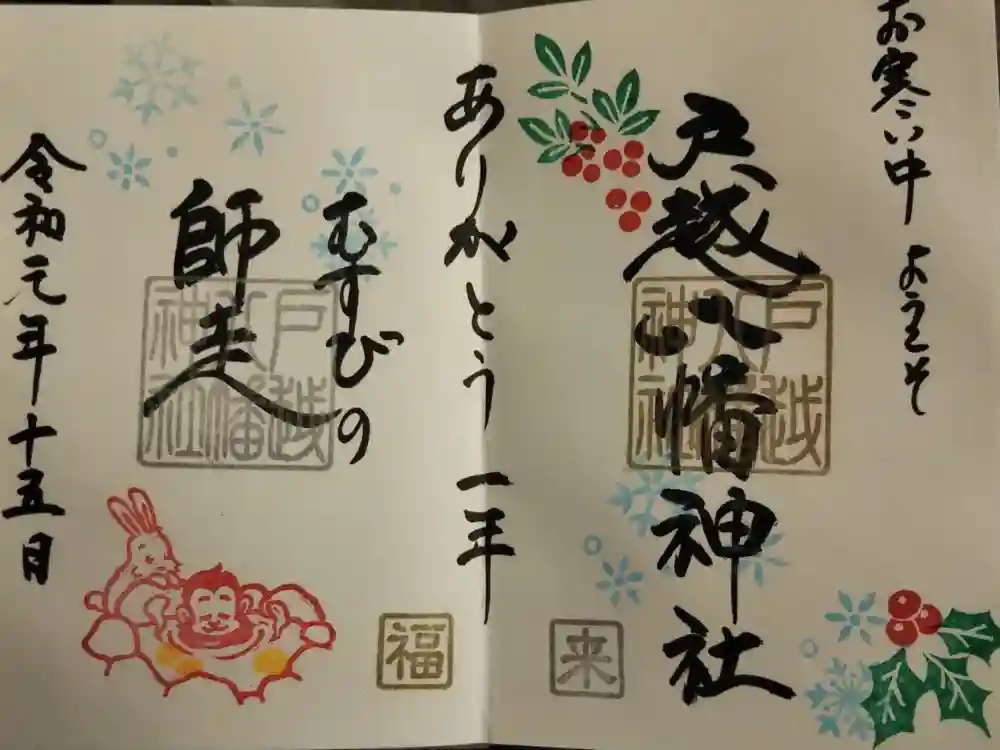 お寒い中 ようこそ
戸越八幡神社
戸越八幡神社
来
ありがとう 一年
福
むすびの
師走
戸越八幡神社
令和元年十五日